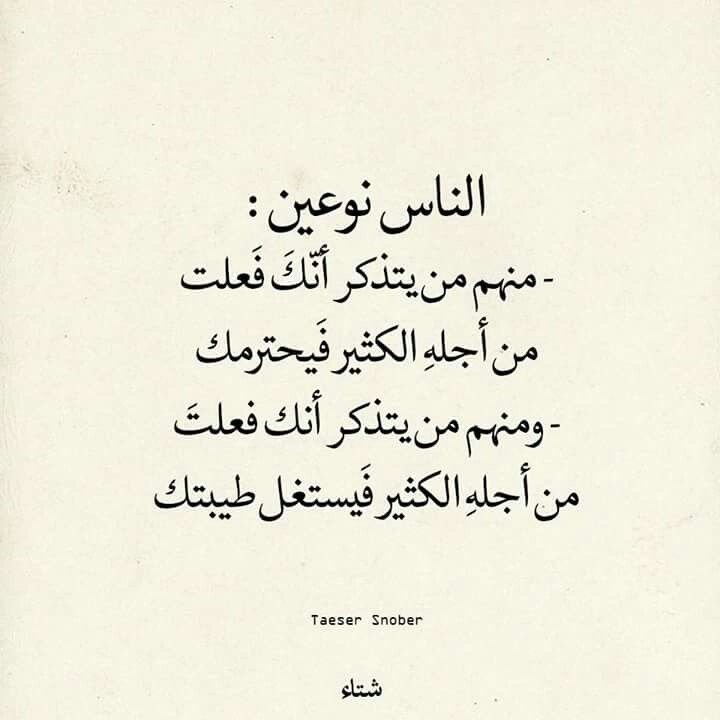 الناس نوعين :
- منهم من يتذكر أنّكَ فَعلت
من أجلهِ الكثير فَيحترمك
- ومنهم من يتذكر أنك فعلتَ
من أجلهِ الكثير فَيستغل طيبتك
Taeser Snober
شتاء